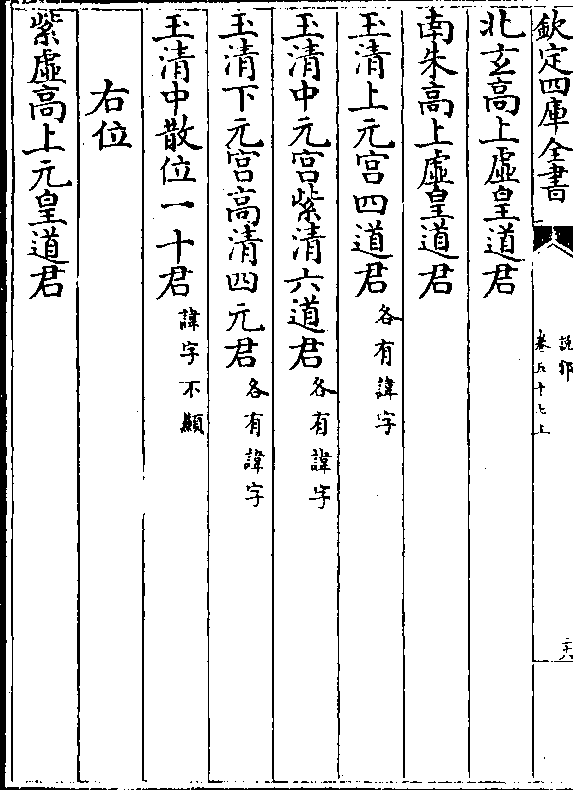 欽定四庫全書
說郛
卷五十七上
二六
北玄高上虛皇道君
南朱高上虛皇道君
玉清上元宮四道君各有諱字
玉清中元宮紫清六道君各有諱字
玉清下元宮高清四元君各有諱字
玉清中散位一十君諱字不顯
右位
紫虛高上元皇道君